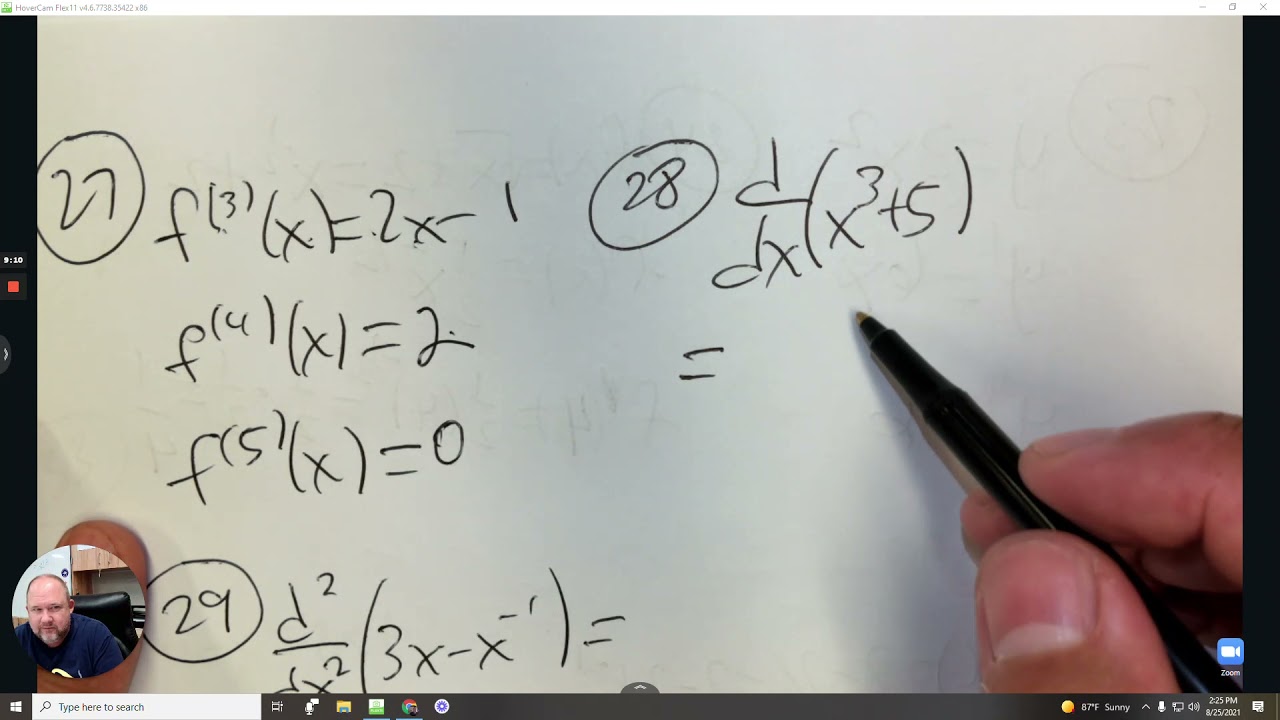 HoverCam Flex11 v4.6.7738.35422 x86
27 f⁽³⁾(x)=2x-1
f⁽⁴⁾(x)=2
f⁽⁵⁾(x)=0
28 d/dx(x³+5)
=
29 d²/dx²(3x-x⁻¹)=
9:10
Zoom
Type here to search
87°F Sunny
2:25 PM
8/25/2021